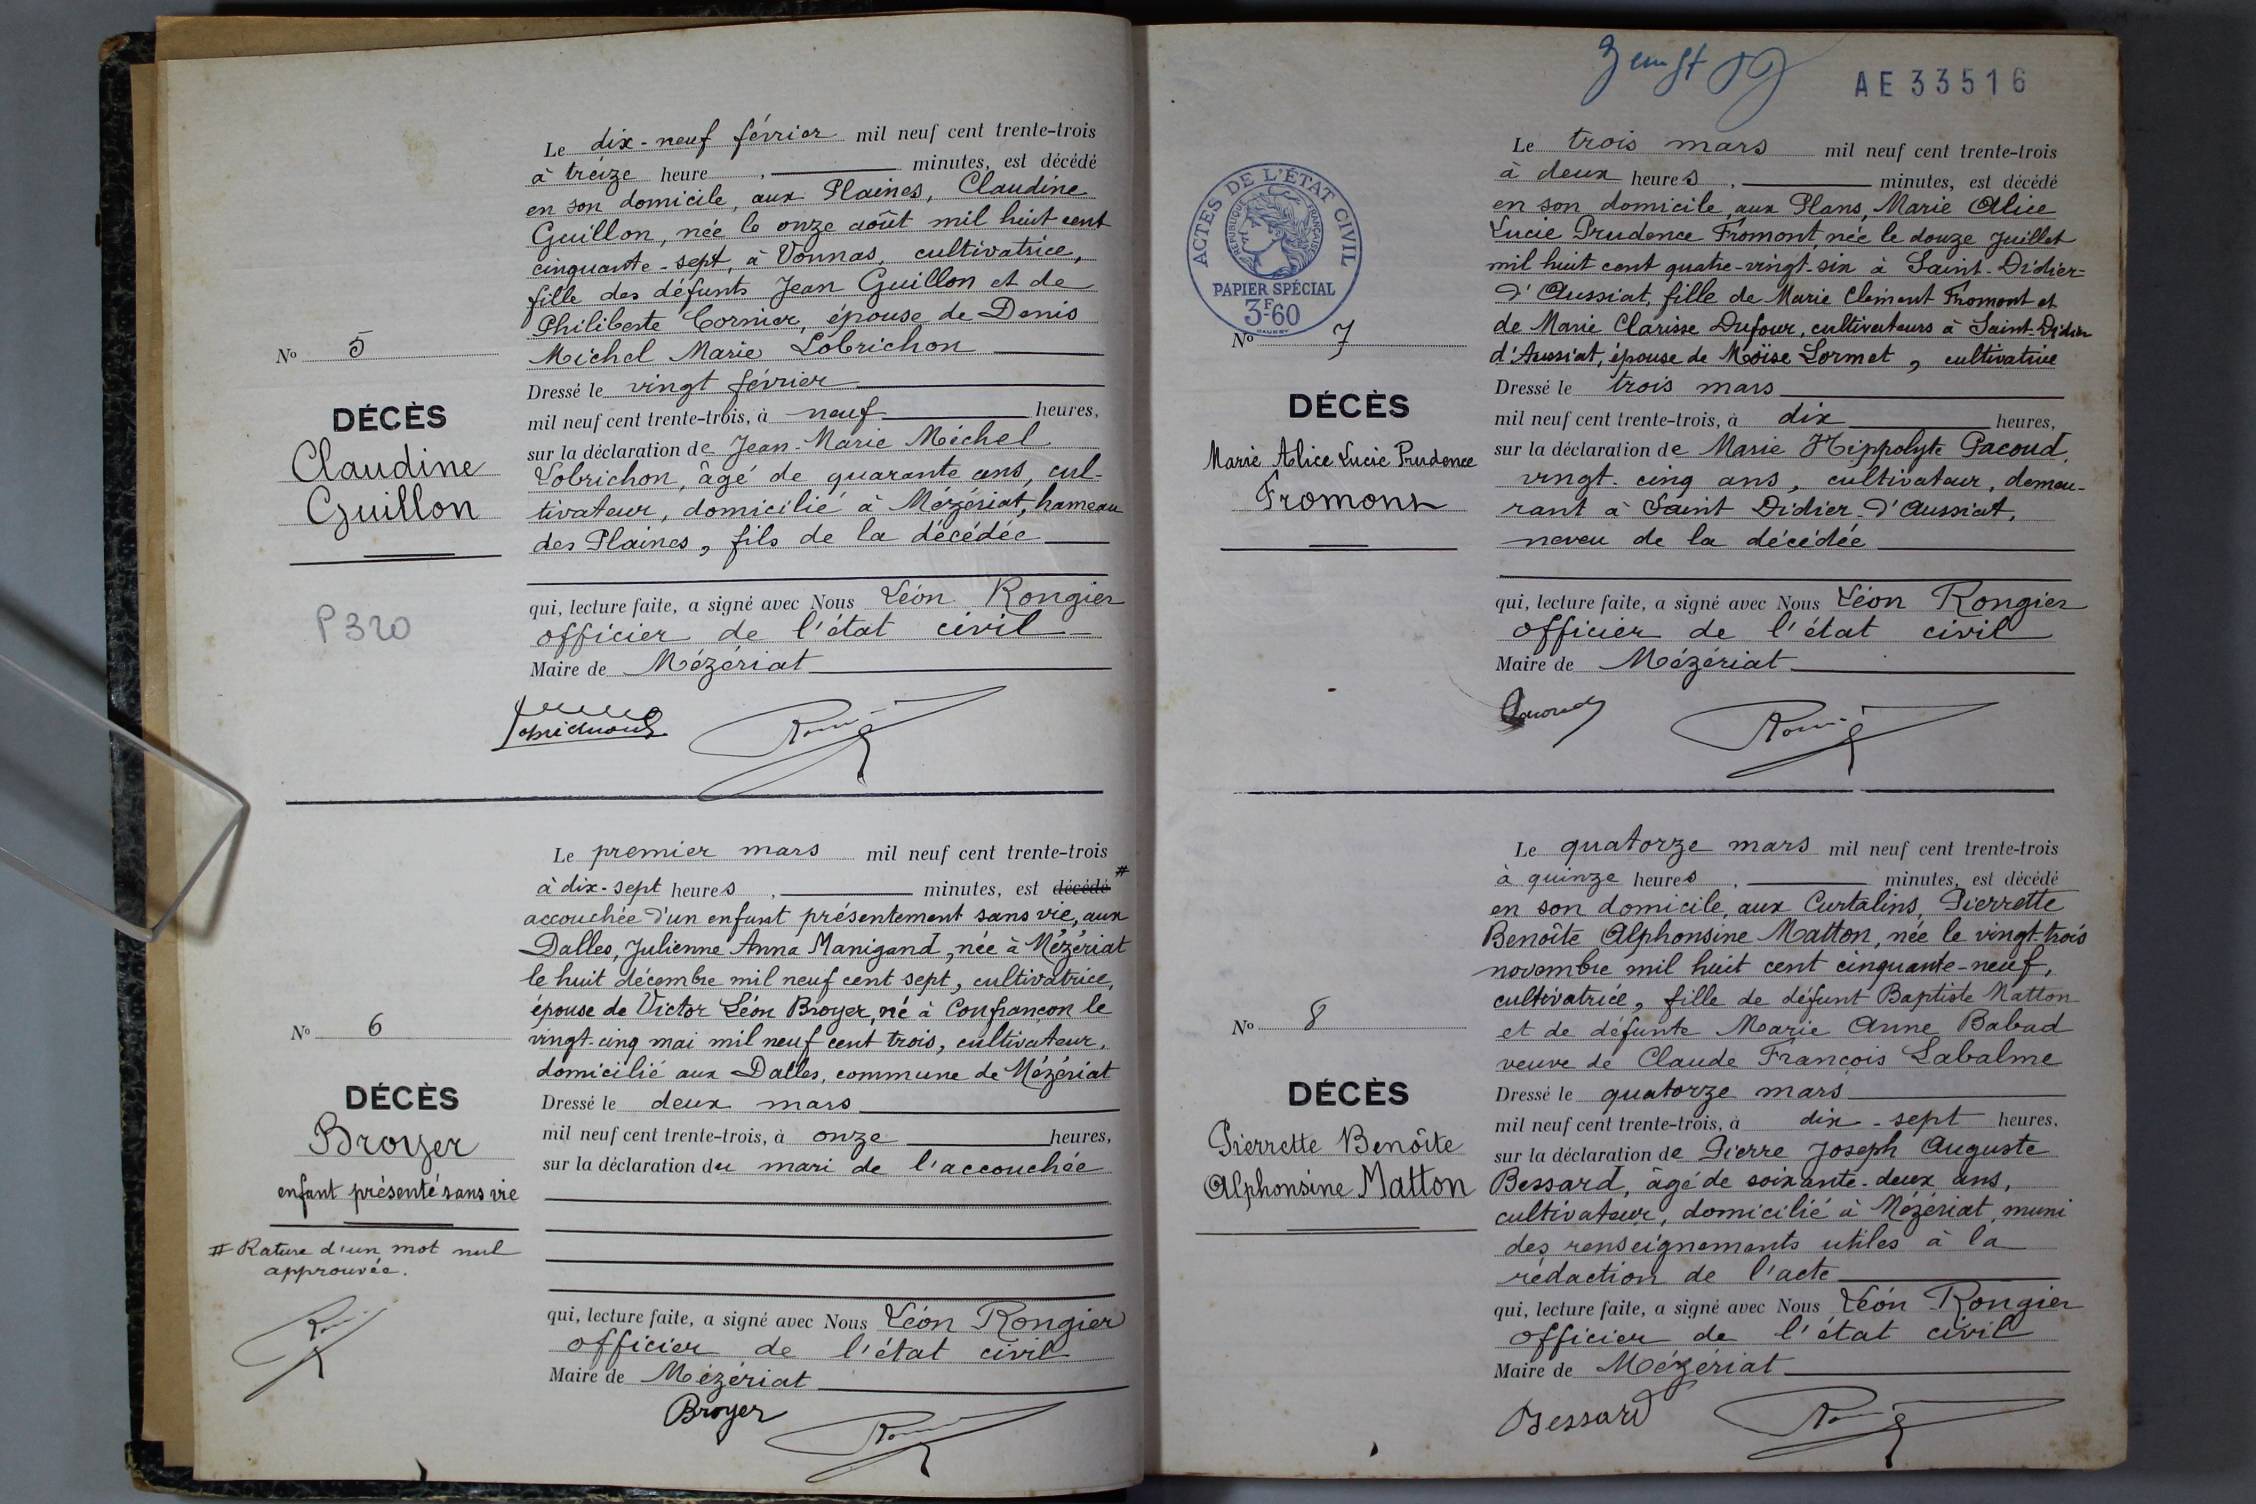 Le dix-neuf février mil neuf cent trente-trois
à treize heure , minutes, est décédé
en son domicile, aux Plaines, Claudine
Guillon, née le onze août mil huit cent
cinquante-sept, à Vonnas, cultivatrice,
fille des défunts Jean Guillon et de
Philiberte Cornier, épouse de Denis
Michel Marie Lobrichon
Dressé le vingt février
mil neuf cent trente-trois, à neuf heures,
sur la déclaration de Jean-Marie Michel
Lobrichon, âgé de quarante ans, cul-
tivateur, domicilié à Mézériat, hameau
des Plaines, fils de la décédée
qui, lecture faite, a signé avec Nous Léon Rongier
officier de l'état civil
Maire de Mézériat
No 5
DÉCÈS
Claudine
Guillon
P320
Le premier mars mil neuf cent trente-trois
à dix-sept heures , minutes, est décédé #
accouchée d'un enfant présentement sans vie, aux
Dalles, Julienne Anna Manigand, née à Mézériat
le huit décembre mil neuf cent sept, cultivatrice,
épouse de Victor Léon Broyer, né à Confrançon le
vingt-cinq mai mil neuf cent trois, cultivateur,
domicilié aux Dalles, commune de Mézériat
Dressé le deux mars
mil neuf cent trente-trois, à onze heures,
sur la déclaration du mari de l'accouchée
qui, lecture faite, a signé avec Nous Léon Rongier
officier de l'état civil
Maire de Mézériat
Broyer
No 6
DÉCÈS
Broyer
enfant présenté sans vie
# Rature d'un mot nul
approuvée.
AE 33516
ACTES DE L'ÉTAT CIVIL
RÉPUBLIQUE FRANÇAISE
PAPIER SPÉCIAL
3F60
Le trois mars mil neuf cent trente-trois
à deux heures , minutes, est décédé
en son domicile, aux Plans, Marie Alice
Lucie Prudence Fromont née le douze juillet
mil huit cent quatre-vingt-six à Saint-Didier-
d'Aussiat, fille de Marie Clément Fromont et
de Marie Clarisse Dufour, cultivateurs à Saint-Didier
d'Aussiat, épouse de Moïse Lormet, cultivatrice
Dressé le trois mars
mil neuf cent trente-trois, à dix heures,
sur la déclaration de Marie Hippolyte Pacoud,
vingt-cinq ans, cultivateur, demeu-
rant à Saint Didier-d'Aussiat,
neveu de la décédée
qui, lecture faite, a signé avec Nous Léon Rongier
officier de l'état civil
Maire de Mézériat
Pacoud
No 7
DÉCÈS
Marie Alice Lucie Prudence
Fromont
Le quatorze mars mil neuf cent trente-trois
à quinze heures , minutes, est décédé
en son domicile, aux Curtalins, Pierrette
Benoîte Alphonsine Matton, née le vingt-trois
novembre mil huit cent cinquante-neuf,
cultivatrice, fille de défunt Baptiste Matton
et de défunte Marie Anne Babad
veuve de Claude François Labalme
Dressé le quatorze mars
mil neuf cent trente-trois, à dix-sept heures,
sur la déclaration de Pierre Joseph Auguste
Bessard, âgé de soixante-deux ans,
cultivateur, domicilié à Mézériat, muni
des renseignements utiles à la
rédaction de l'acte
qui, lecture faite, a signé avec Nous Léon Rongier
officier de l'état civil
Maire de Mézériat
Bessard
No 8
DÉCÈS
Pierrette Benoîte
Alphonsine Matton